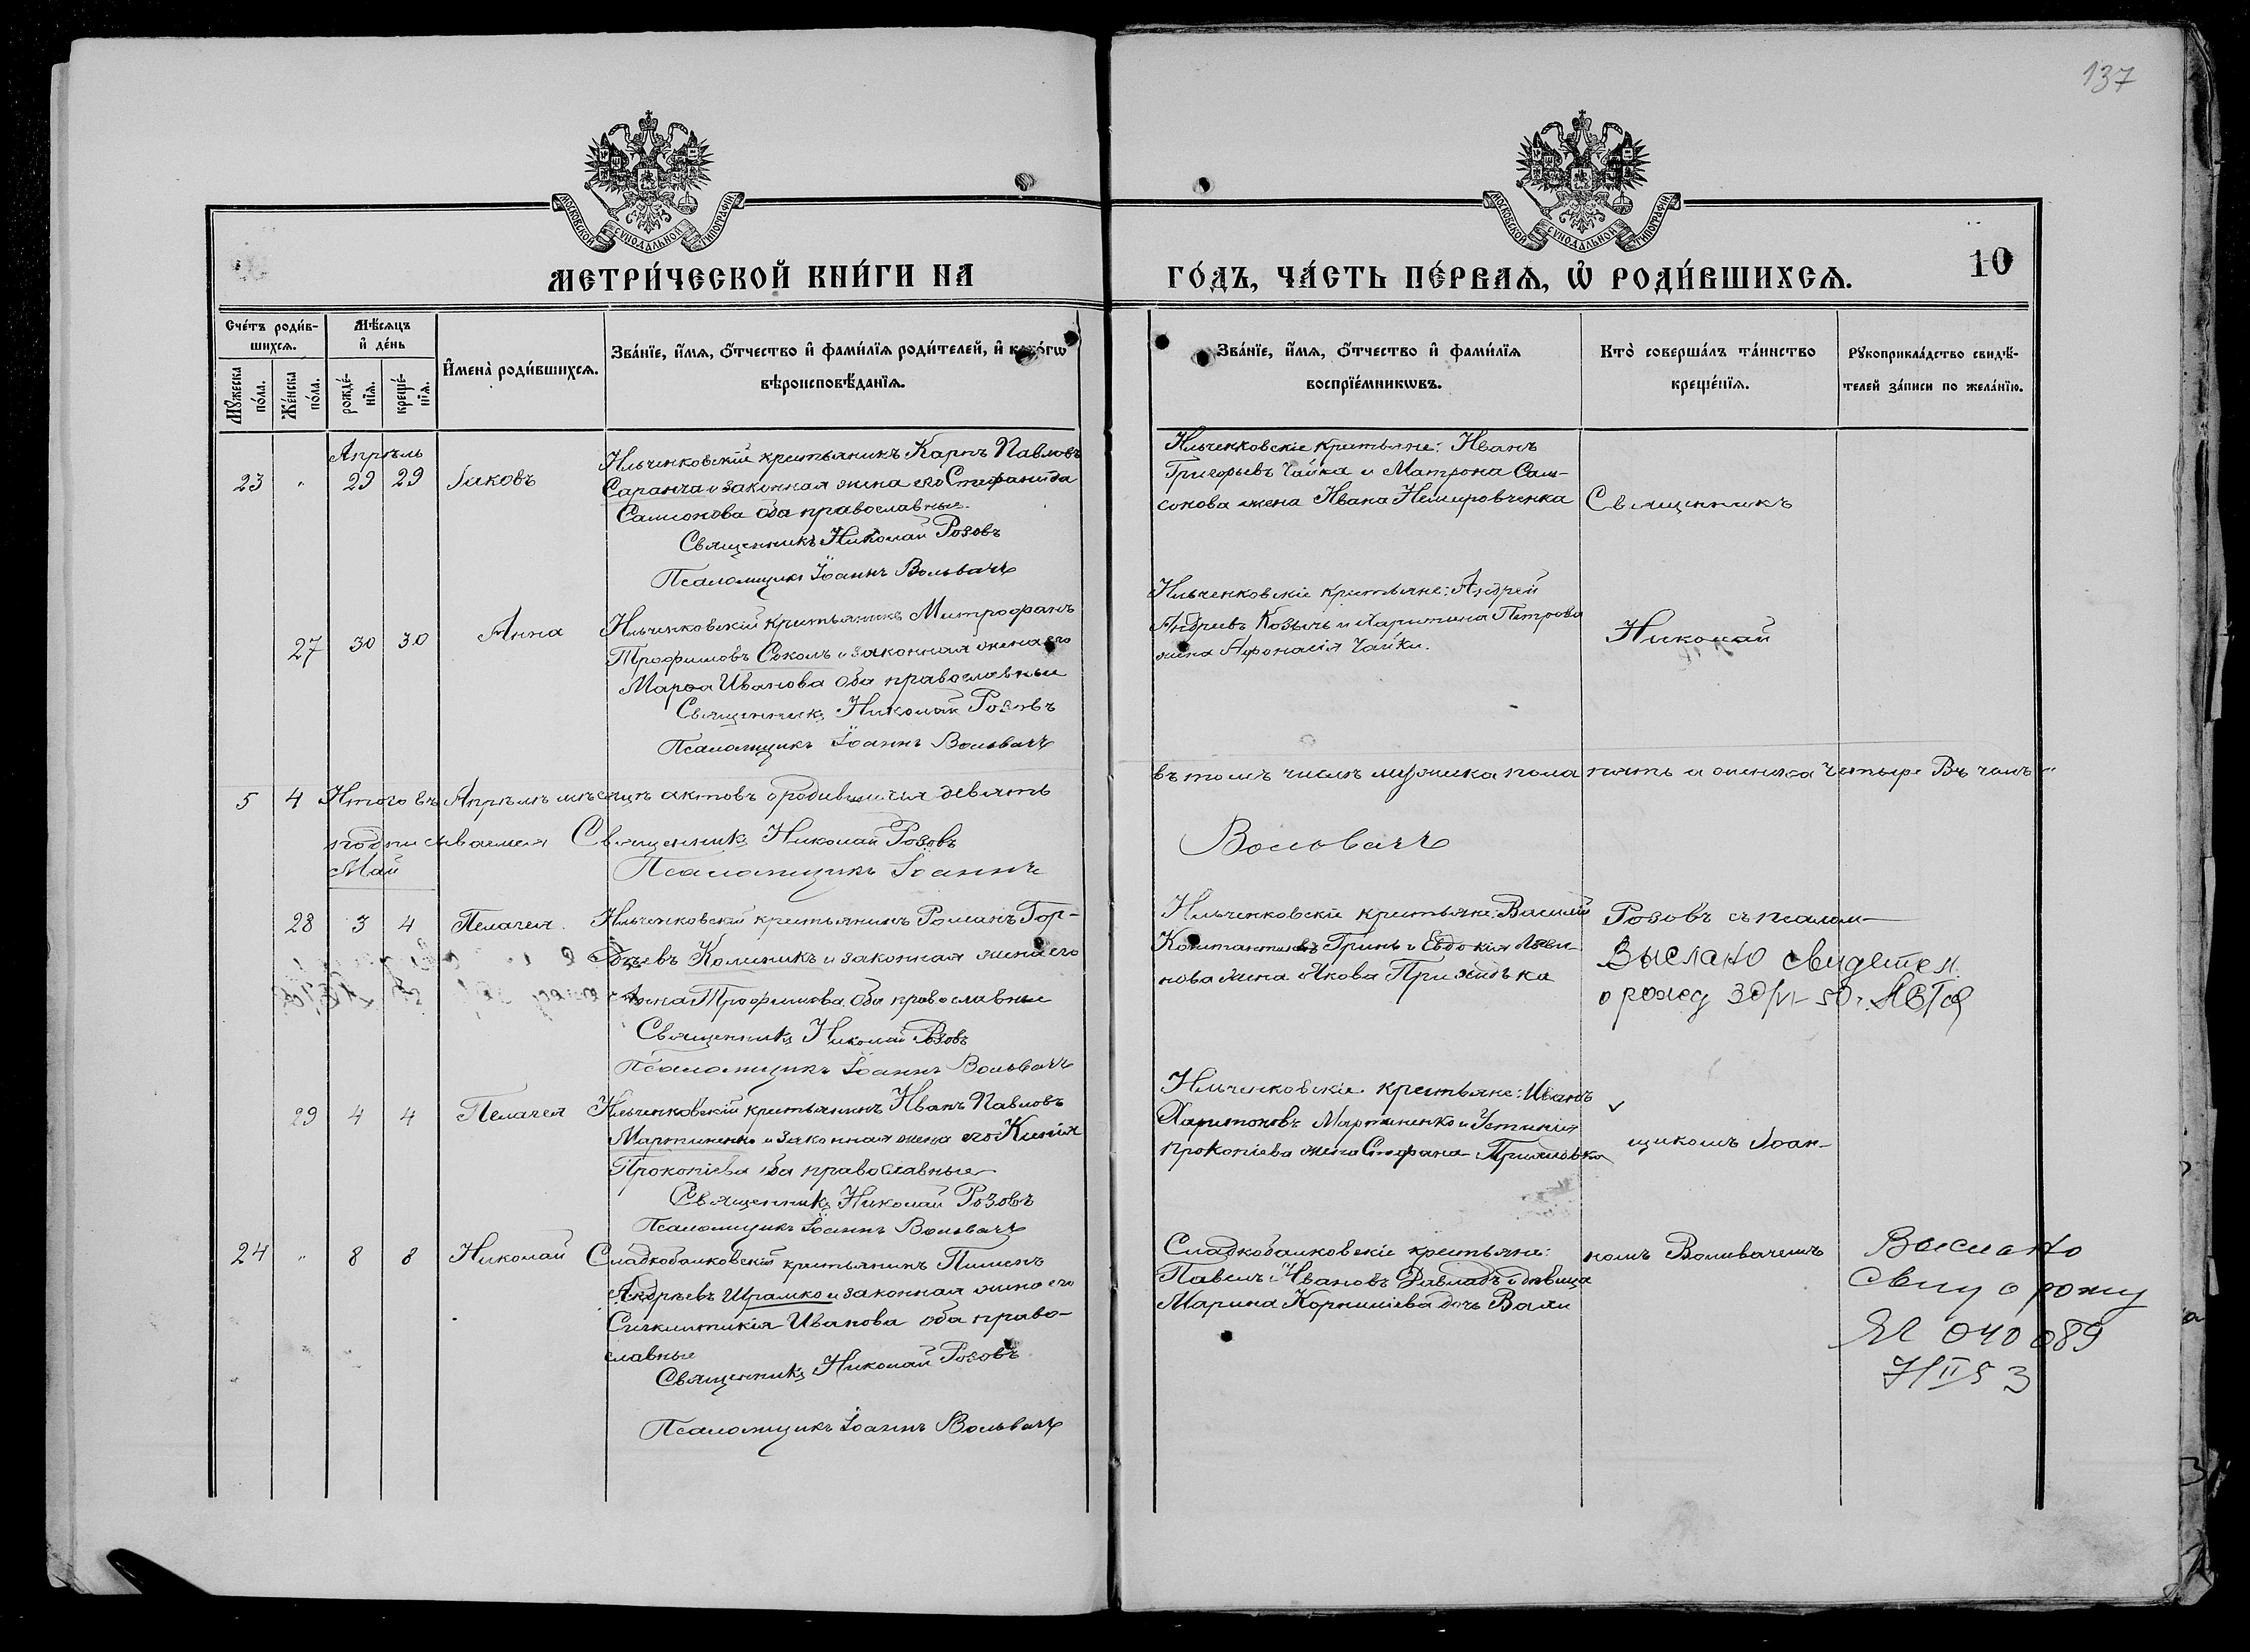 137
МОСКОВСКОЙ СѴНОДАЛЬНОЙ ТИПОГРАФІИ
МОСКОВСКОЙ СѴНОДАЛЬНОЙ ТИПОГРАФІИ
МЕТРИ́ЧЕСКОЙ КНИ́ГИ НА
ГО́ДЪ, ЧА́СТЬ ПЕ́РВАѦ, Ѡ҆ РОДИ́ВШИХСѦ.
10
Сче́тъ роди́в-
шихсѧ.
Мꙋ́жеска
по́ла.
Же́нска
по́ла.
Мѣ́сѧцъ
и҆ де́нь
рожде́-
нїѧ.
креще́-
нїѧ.
И҆мена̀ роди́вшихсѧ.
Зва́нїе, и҆́мѧ, ѻ҆́тчество и҆ фами́лїѧ роди́телей, и҆ како́гѡ
вѣроисповѣ́данїѧ.
Зва́нїе, и҆́мѧ, ѻ҆́тчество и҆ фами́лїѧ
воспрїе́мникѡвъ.
Кто̀ соверша́лъ та́инство
креще́нїѧ.
Рꙋкоприкла́дство свидѣ́-
телей за́писи по жела́нїю.
Апрѣль
23 " 29 29 Іаковъ
Ильченковскій крестьянинъ Карпъ Павловъ
Саранча и законная жена его Стефанида
Самсонова оба православные.
Священникъ Николай Розовъ
Псаломщикъ Іоаннъ Вольвачъ
Ильченковскіе крестьяне: Иванъ
Григорьевъ Чайка и Матрона Сам-
сонова жена Ивана Немировченка
Священникъ
27 30 30 Анна
Ильченковскій крестьянинъ Митрофанъ
Трофимовъ Соколъ и законная жена его
Марѳа Иванова оба православные
Священникъ Николай Розовъ
Псаломщикъ Іоаннъ Вольвачъ
Ильченковскіе крестьяне: Андрей
Андреевъ Козычъ и Харитина Петрова
жена Афонасія Чайки.
Николай
5 4 Итого въ Апрѣлѣ мѣсяцѣ актовъ о родившихся девять
въ томъ числѣ мужеска пола пять и женска четыре Въ чемъ и
подписываемся Священникъ Николай Розовъ
Псаломщикъ Іоаннъ
Вольвачъ
Май
28 3 4 Пелагея
Ильченковскій крестьянинъ Романъ Гор-
дѣевъ Колиникъ и законная жена его
Анна Трофимова оба православные
Священникъ Николай Розовъ
Псаломщикъ Іоаннъ Вольвачъ
Ильченковскіе крестьяне: Василій
Константиновъ Гринь и Евдокія
нова жена Якова
Розовъ съ псалом-
Выслано свидетел.
о рожд 30/VI-50г.
29 4 4 Пелагея
Ильченковскій крестьянинъ Иванъ Павловъ
Мартиненко и законная жена его Ксенія
Прокопіева оба православные
Священникъ Николай Розовъ
Псаломщикъ Іоаннъ Вольвачъ
Ильченковскіе крестьяне: Иванъ
Харитоновъ Мартиненко и Устинія
Прокопіева жена Стефана
щикомъ Іоан-
24 " 8 8 Николай
Сладкобалковскій крестьянинъ Пименъ
Андреевъ Шрамко и законная жена его
Сигклитикія Иванова оба право-
славные
Священникъ Николай Розовъ
Псаломщикъ Іоаннъ Вольвачъ
Сладкобалковскіе крестьяне:
Павелъ Ивановъ и дѣвица
Марина Корниліева дочь
номъ Вольвачемъ
Выслано
о рожд
040089